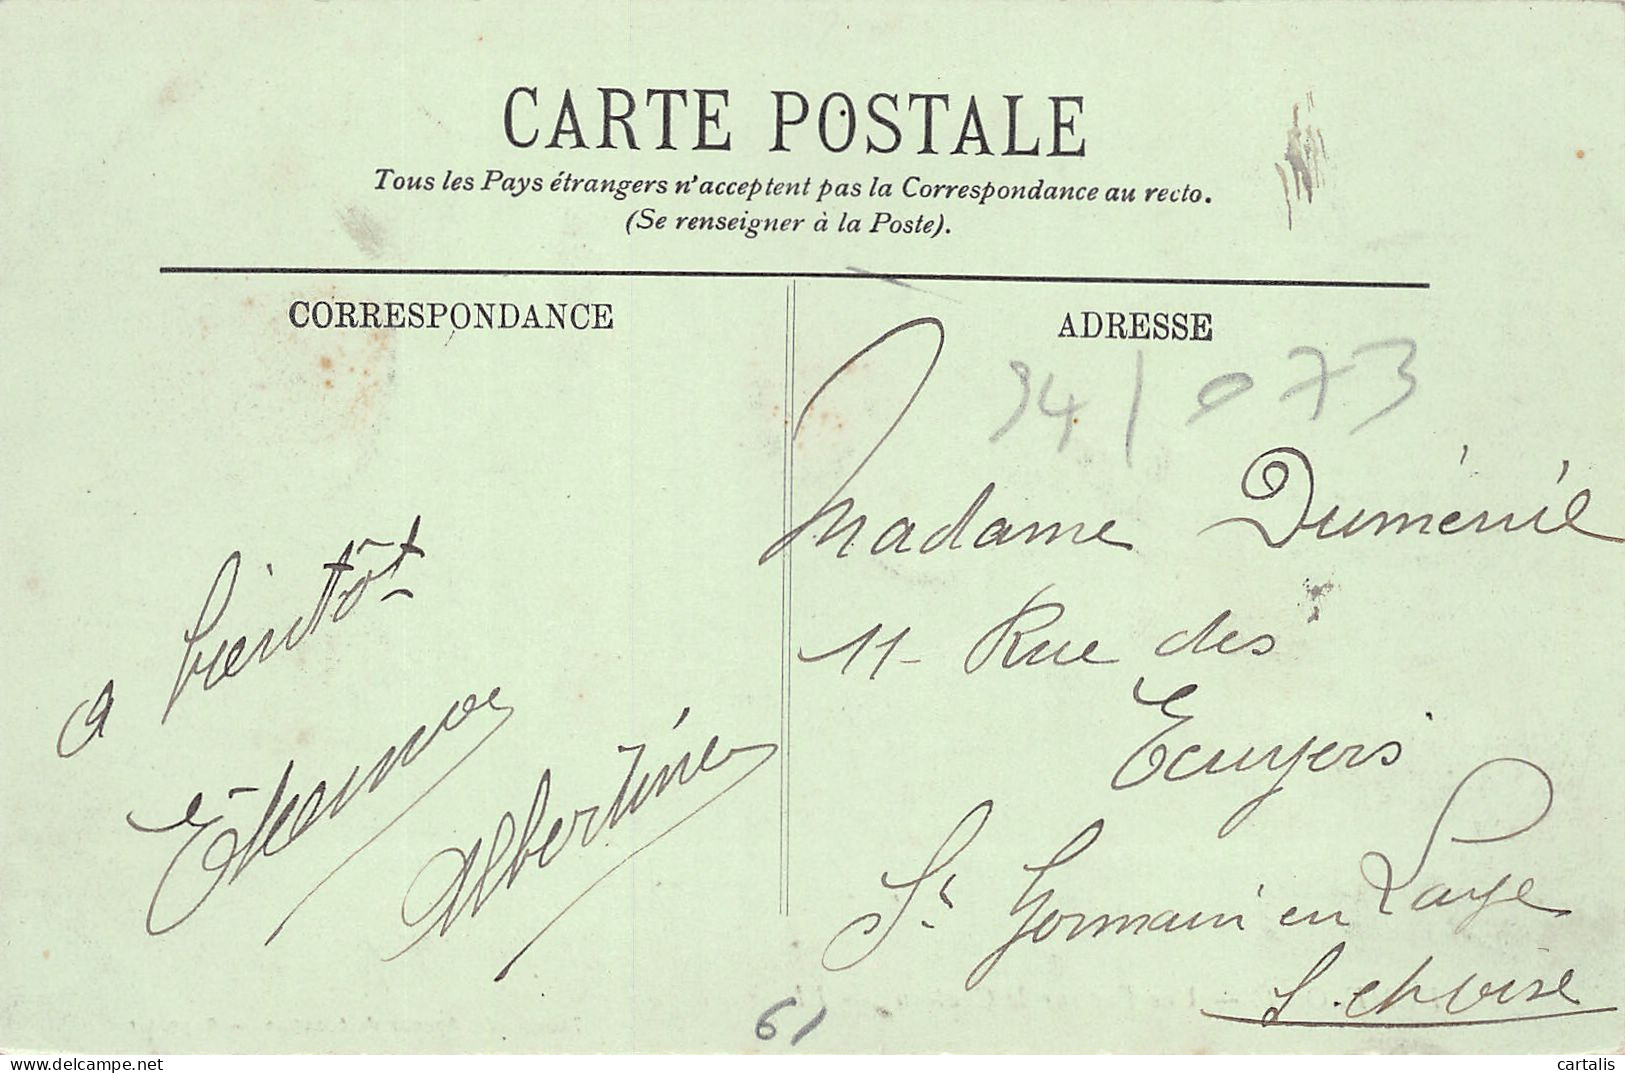 CARTE POSTALE
Tous les Pays étrangers n'acceptent pas la Correspondance au recto.
(Se renseigner à la Poste).
CORRESPONDANCE
a bientôt
Albertine
ADRESSE
94/073
Madame Duménil
11 - Rue des
Ecuyers
St Germain en Laye
S. et Oise
61
delcampe.net
cartalis